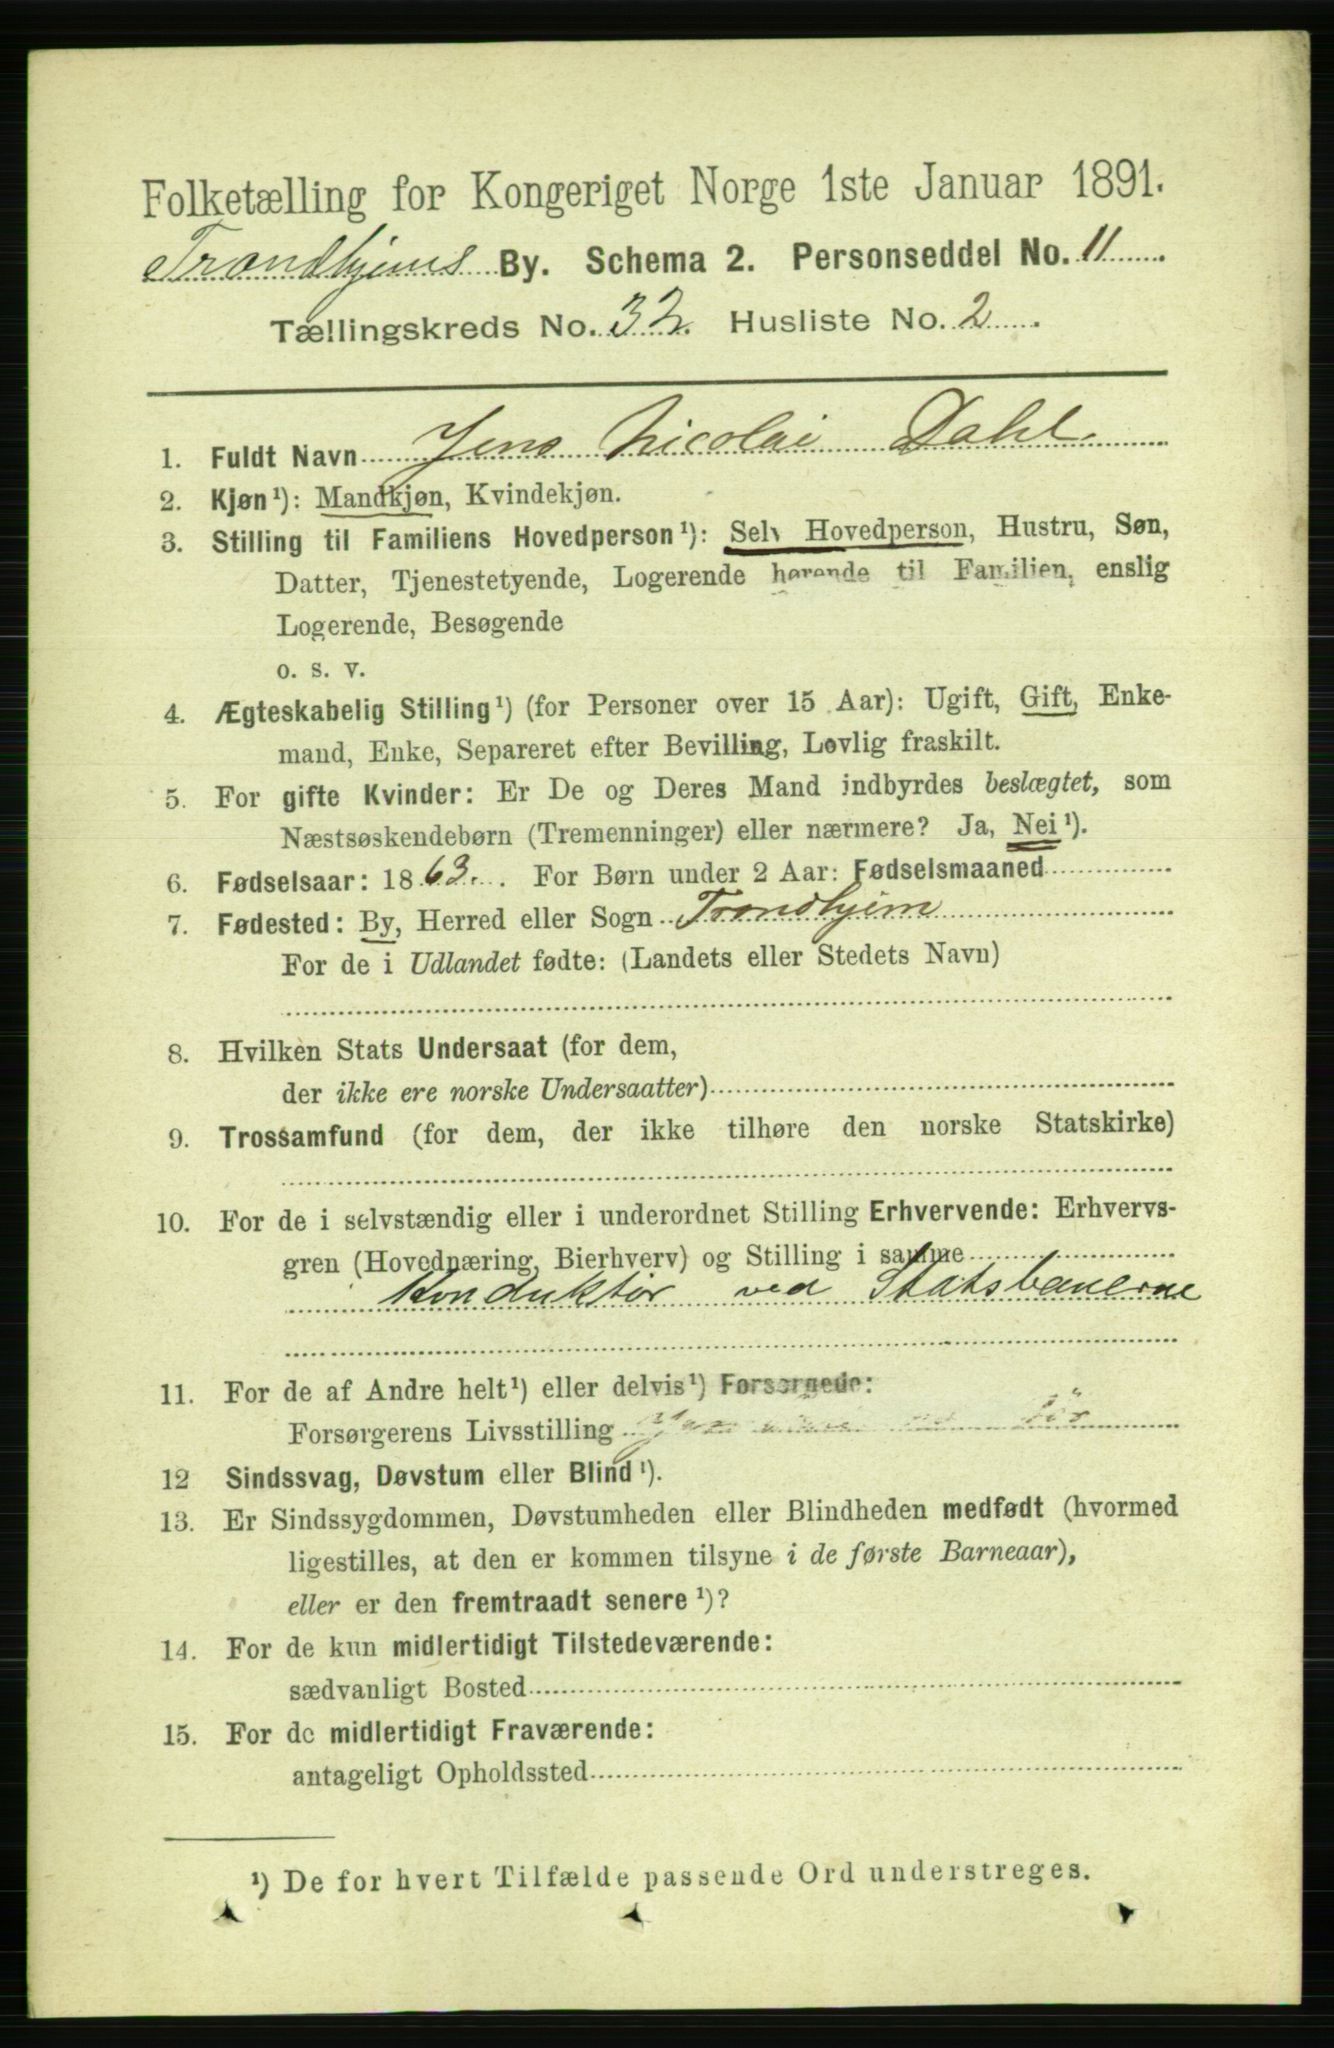 Folketælling for Kongeriget Norge 1ste Januar 1891.
Trondhjems By. Schema 2. Personseddel No. 11
Tællingskreds No. 32. Husliste No. 2
1. Fuldt Navn Jens Nicolai Dahl.
2. Kjøn¹): Mandkjøn, Kvindekjøn.
3. Stilling til Familiens Hovedperson¹): Selv Hovedperson, Hustru, Søn,
Datter, Tjenestetyende, Logerende hørende til Familien, enslig
Logerende, Besøgende
o. s. v.
4. Ægteskabelig Stilling¹) (for Personer over 15 Aar): Ugift, Gift, Enke-
mand, Enke, Separeret efter Bevilling, Lovlig fraskilt.
5. For gifte Kvinder: Er De og Deres Mand indbyrdes beslægtet, som
Næstsøskendebørn (Tremenninger) eller nærmere? Ja, Nei¹).
6. Fødselsaar: 1863. For Børn under 2 Aar: Fødselsmaaned
7. Fødested: By, Herred eller Sogn Trondhjem
For de i Udlandet fødte: (Landets eller Stedets Navn)
8. Hvilken Stats Undersaat (for dem,
der ikke ere norske Undersaatter)
9. Trossamfund (for dem, der ikke tilhøre den norske Statskirke)
10. For de i selvstændig eller i underordnet Stilling Erhvervende: Erhvervs-
gren (Hovednæring, Bierhverv) og Stilling i samme
Konduktør ved Statsbanerne
11. For de af Andre helt¹) eller delvis¹) Forsørgede:
Forsørgerens Livsstilling
12 Sindssvag, Døvstum eller Blind¹).
13. Er Sindssygdommen, Døvstumheden eller Blindheden medfødt (hvormed
ligestilles, at den er kommen tilsyne i de første Barneaar),
eller er den fremtraadt senere¹)?
14. For de kun midlertidigt Tilstedeværende:
sædvanligt Bosted
15. For de midlertidigt Fraværende:
antageligt Opholdssted
¹) De for hvert Tilfælde passende Ord understreges.